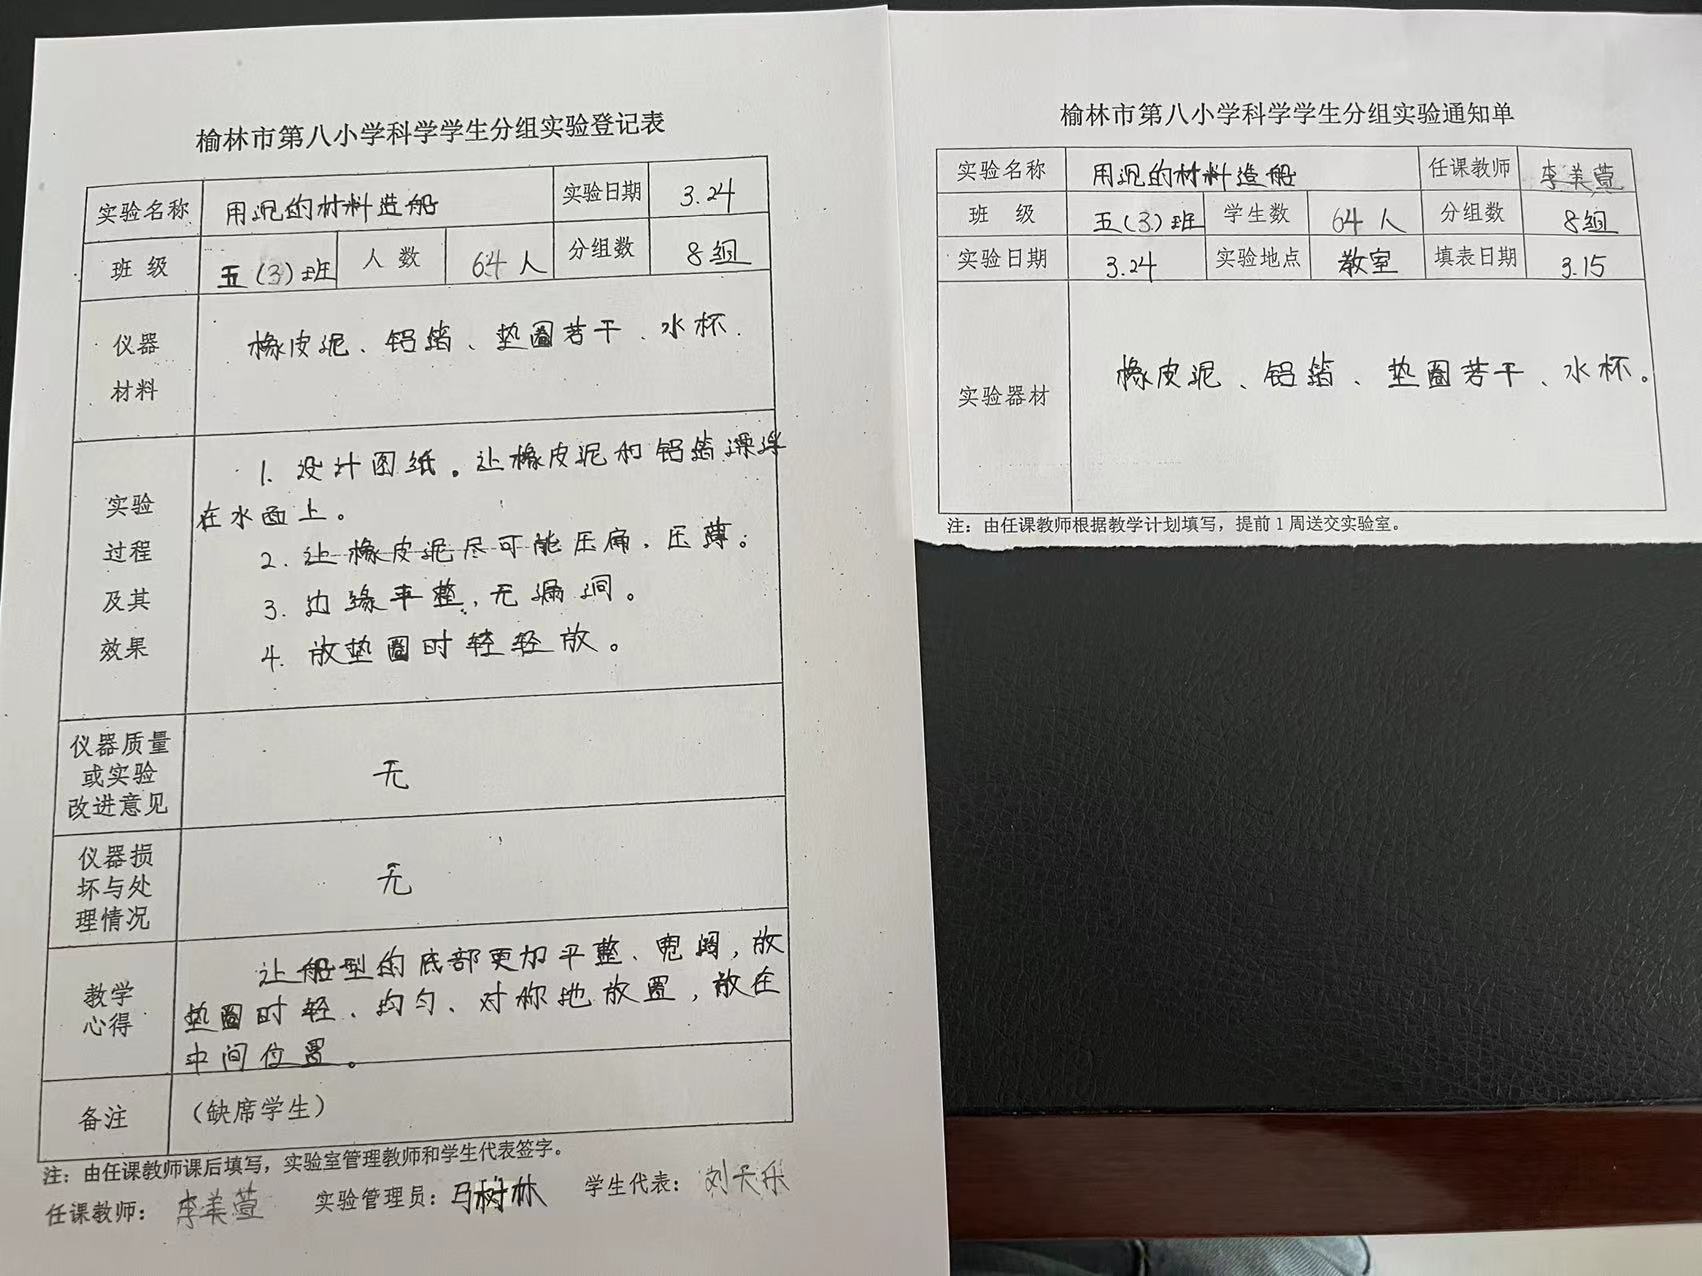 榆林市第八小学科学学生分组实验登记表
实验名称 用沉的材料造船 实验日期 3.24
班 级 五(3)班 人 数 64人 分组数 8组
仪器
材料
橡皮泥、铝箔、垫圈若干、水杯.
实验
过程
及其
效果
1. 设计图纸。让橡皮泥和铝箔漂浮
在水面上。
2. 让橡皮泥尽可能压扁,压薄。
3. 边缘平整,无漏洞。
4. 放垫圈时轻轻放。
仪器质量
或实验
改进意见
无
仪器损
坏与处
理情况
无
教学
心得
让船型的底部更加平整、宽阔,放
垫圈时轻、均匀、对称地放置,放在
中间位置。
备注 (缺席学生)
注:由任课教师课后填写,实验室管理教师和学生代表签字。
任课教师: 李美萱 实验管理员:马树林 学生代表: 刘天乐
榆林市第八小学科学学生分组实验通知单
实验名称 用沉的材料造船 任课教师 李美萱
班 级 五(3)班 学生数 64人 分组数 8组
实验日期 3.24 实验地点 教室 填表日期 3.15
实验器材 橡皮泥、铝箔、垫圈若干、水杯。
注:由任课教师根据教学计划填写,提前1周送交实验室。